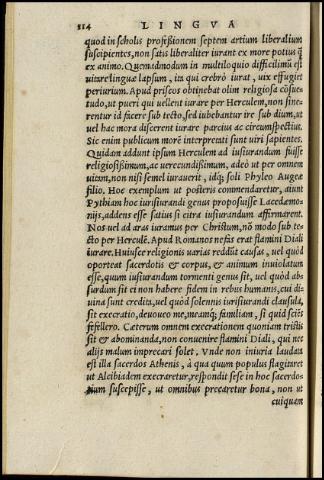 114 LINGVA
quod in scholis professionem septem artium liberalium
suscipientes, non satis liberaliter iurant ex more potius q̃
ex animo. Quemadmodum in multiloquio difficilimū est
vitare linguæ lapsum, ita qui crebrò iurat, uix effugiet
periurium. Apud priscos obtinebat olim religiosa cōsue⸗
tudo, ut pueri qui uellent iurare per Herculem, non sine⸗
rentur id facere sub tecto, sed iubebantur ire sub dium, ut
uel hac mora discerent iurare parcius ac circumspectius.
Sic enim publicum morē interpretati sunt uiri sapientes.
Quidam addunt ipsum Herculem ad iusiurandum fuisse
religiosissimum, ac uerecundissimum, adeò ut per omnem
uitam, non nisi semel iurauerit, idq; soli Phyleo Augeæ
filio. Hoc exemplum ut posteris commendaretur, aiunt
Pythiam hoc iurisiurandi genus proposuisse Lacedæmo
nijs, addens esse satius si citra iusiurandum affirmarent.
Nos uel ad aras iuramus per Christum, nō modo sub te⸗
cto per Herculē. Apud Romanos nefas erat flamini Diali
iurare. Huiusce religionis varias reddūt causas, uel quòd
oporteat sacerdotis & corpus, & animum inuiolatum
esse, quum iusiurandum tormenti genus sit, uel quòd abs
surdum sit ei non habere fidem in rebus humanis, cui di⸗
uina sunt credita, uel quòd solennis iurisiurandi clausula,
sit execratio, deuoueo me, meamq; familiam, si quid sciēs
fefellero. Cæterum omnem execrationem quoniam tristis
sit & abominanda, non conuenire flamini Diali, qui nec
alijs malum imprecari solet, Vnde non iniuria laudata
est illa sacerdos Athenis, à qua quum populus flagitaret
ut Alcibiadem execraretur, respondit sese in hoc sacerdos
tium suscepisse, ut omnibus precaretur bona, non ut
cuiquam